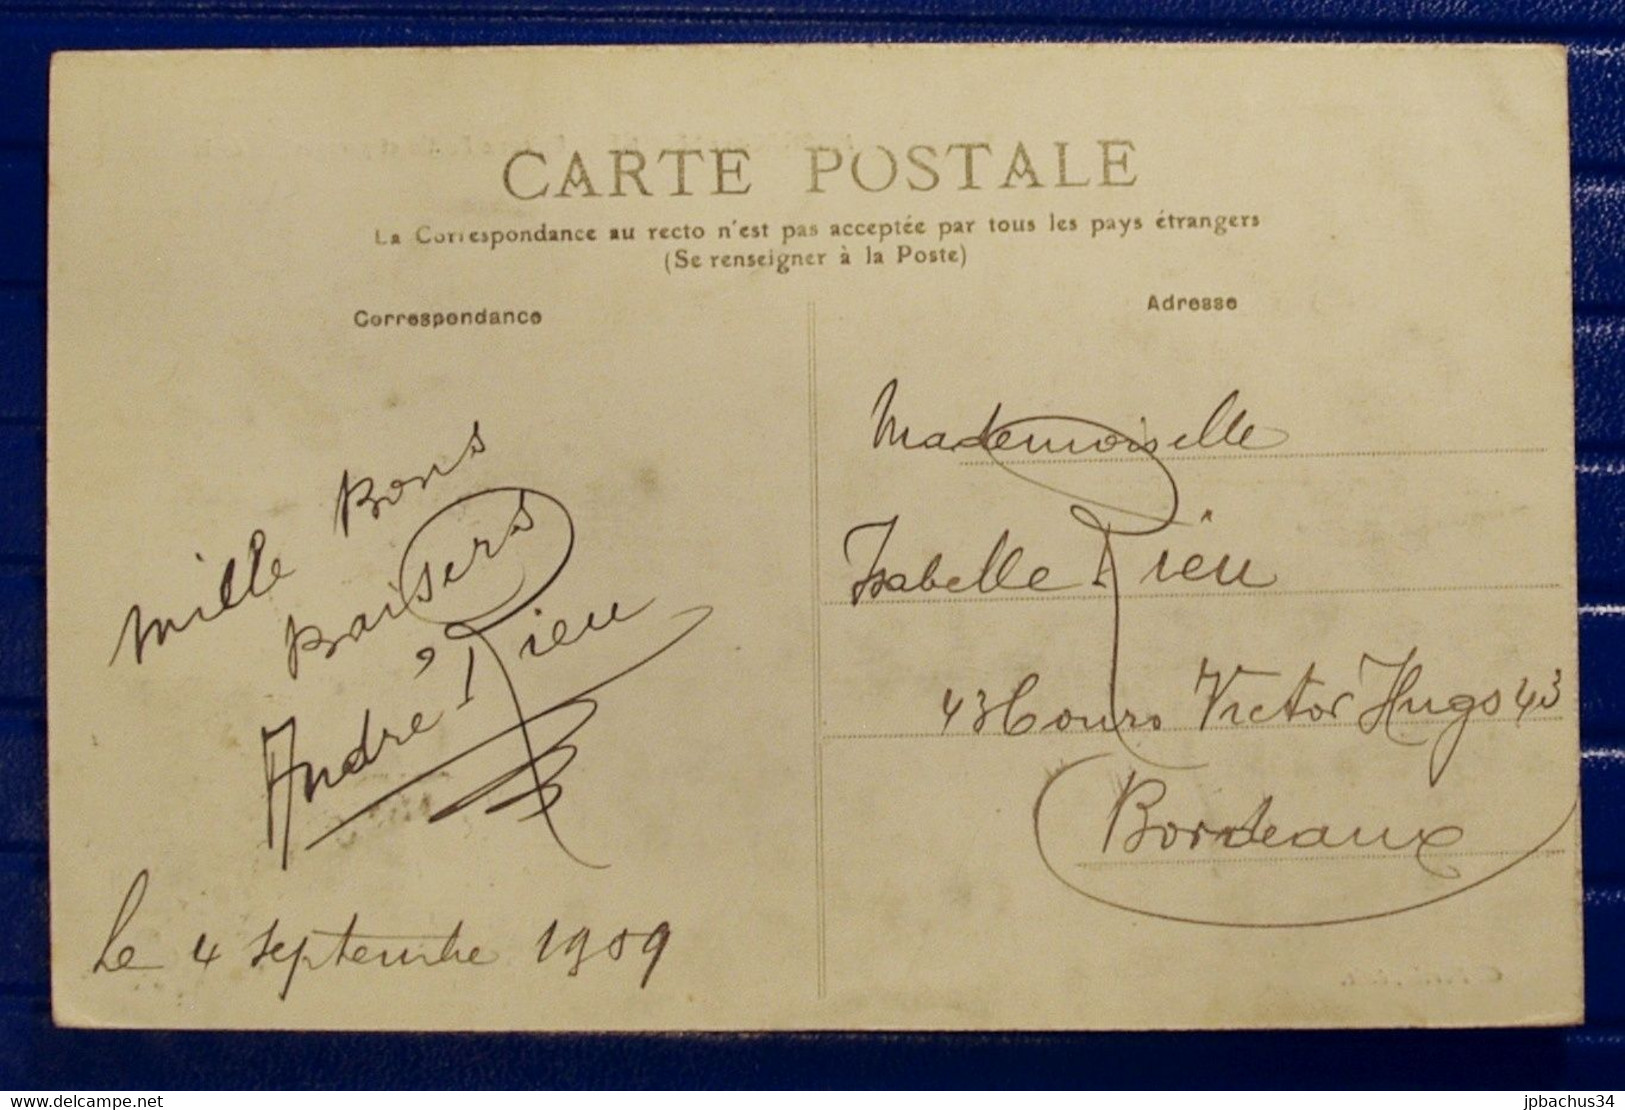 CARTE POSTALE
La Correspondance au recto n'est pas acceptée par tous les pays étrangers
(Se renseigner à la Poste)
Correspondance
Mille Bons
Baisers
André Rieu
Le 4 septembre 1909
Adresse
Mademoiselle
Isabelle Rieu
43 Cours Victor Hugo 43
Bordeaux
delcampe.net
jpbachus34